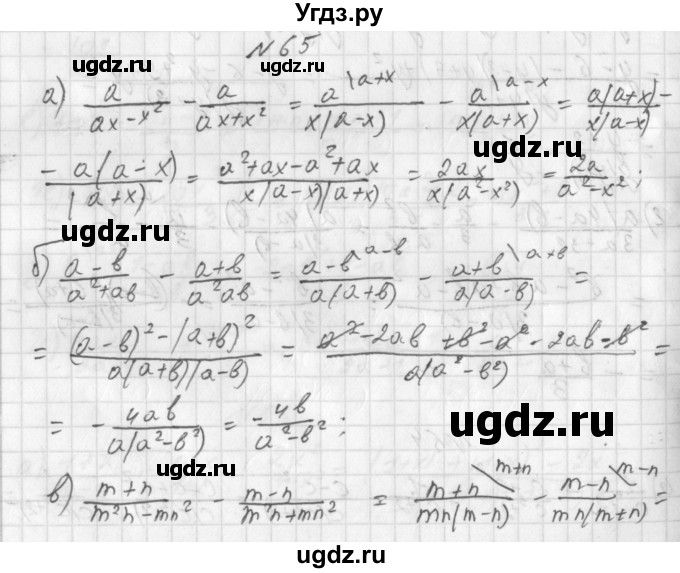 Угдз.ру
№ 65
ugdz.ru ugdz.ru
а) a/(ax-x²) - a/(ax+x²) = a\a+x/(x(a-x)) - a\a-x/(x(a+x)) = a(a+x)-/x(a-x)
- a(a-x)/(a+x) = (a²+ax-a²+ax)/(x(a-x)(a+x)) = 2ax/(x(a²-x²)) = 2a/(a²-x²);
ugdz.ru ugdz.ru
б) (a-в)/(a²+aв) - (a+в)/(a²aв) = (a-в)\a-в/(a(a+в)) - (a+в)\a+в/(a(a-в)) =
= ((a-в)²-(a+в)²)/(a(a+в)(a-в)) = (a²-2aв+в²-a²-2aв=в²)/(a(a²-в²)) =
= - 4aв/(a(a²-в²)) = - 4в/(a²-в²);
ugdz.ru ugdz.ru
в) (m+n)/(m²n-mn²) - (m-n)/(m²n+mn²) = (m+n)\m+n/(mn(m-n)) - (m-n)\m-n/(mn(m+n)) =
ugdz.ru ugdz.ru
ugdz.ru